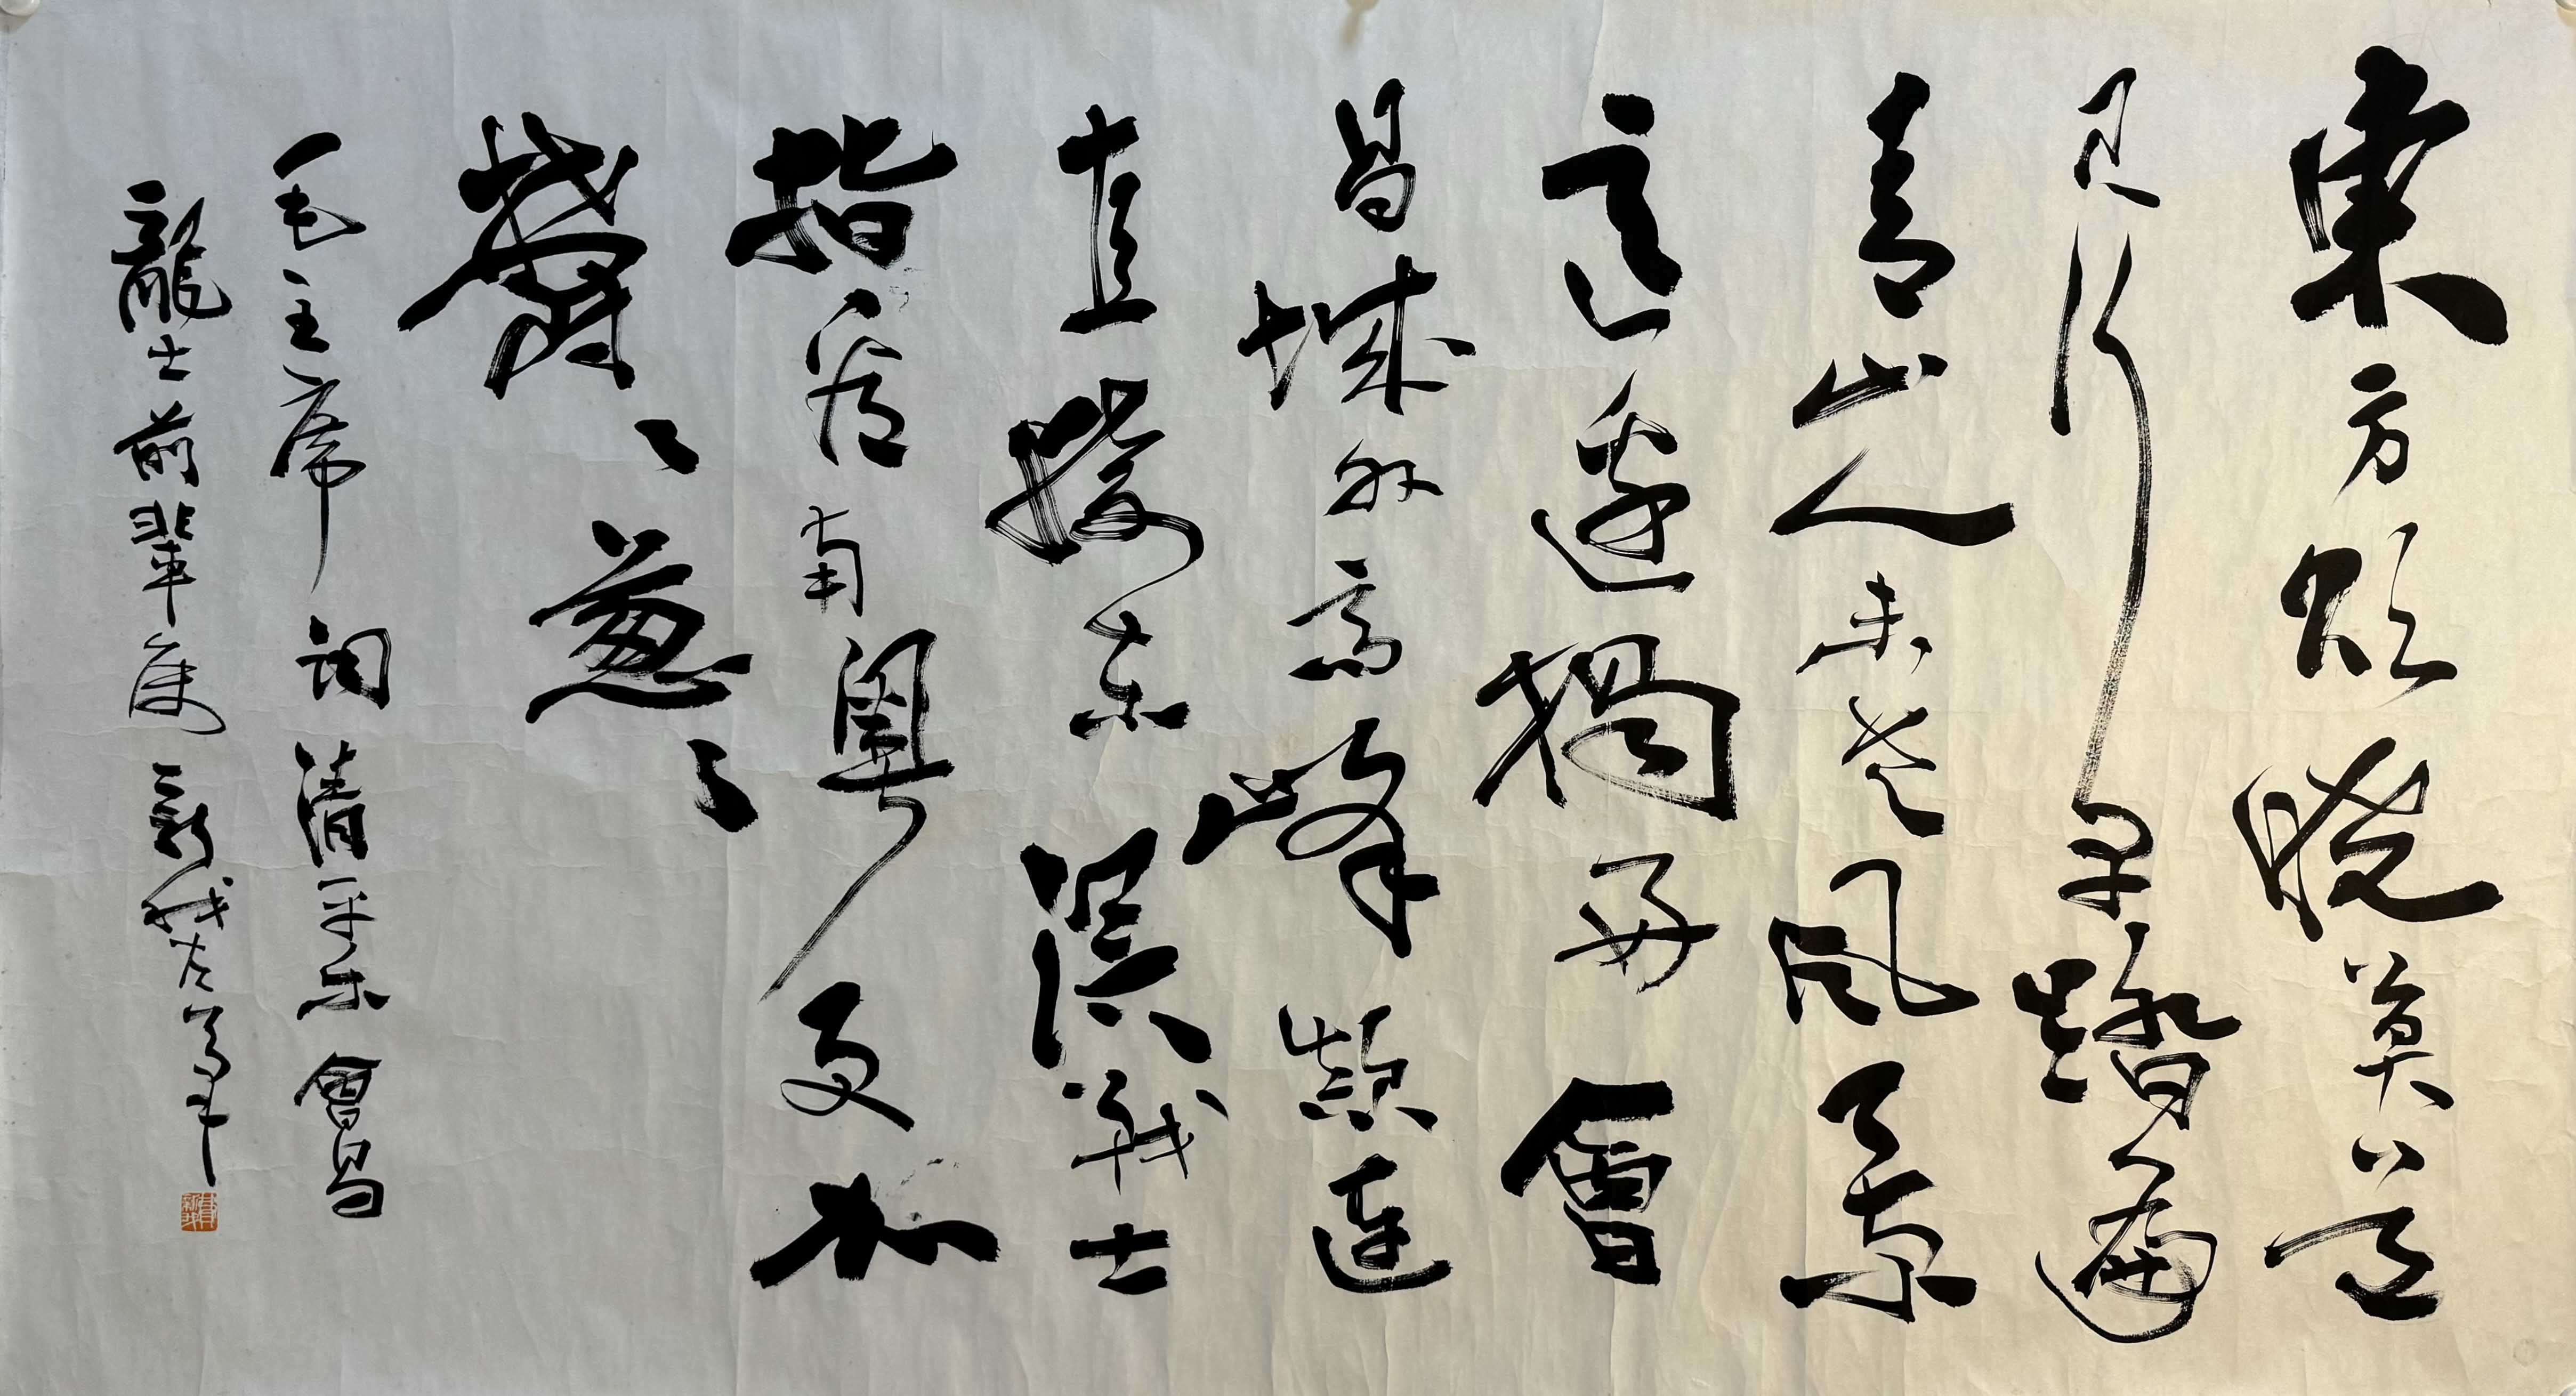 東方欲曉莫道
君行早踏遍
青山人未老風景
這邊獨好會
昌城外高峰顛連
直接東溟戰士
指看南粵更加
鬱々葱々
毛主席詞 清平樂 會昌
龍士前輩屬 新我左筆